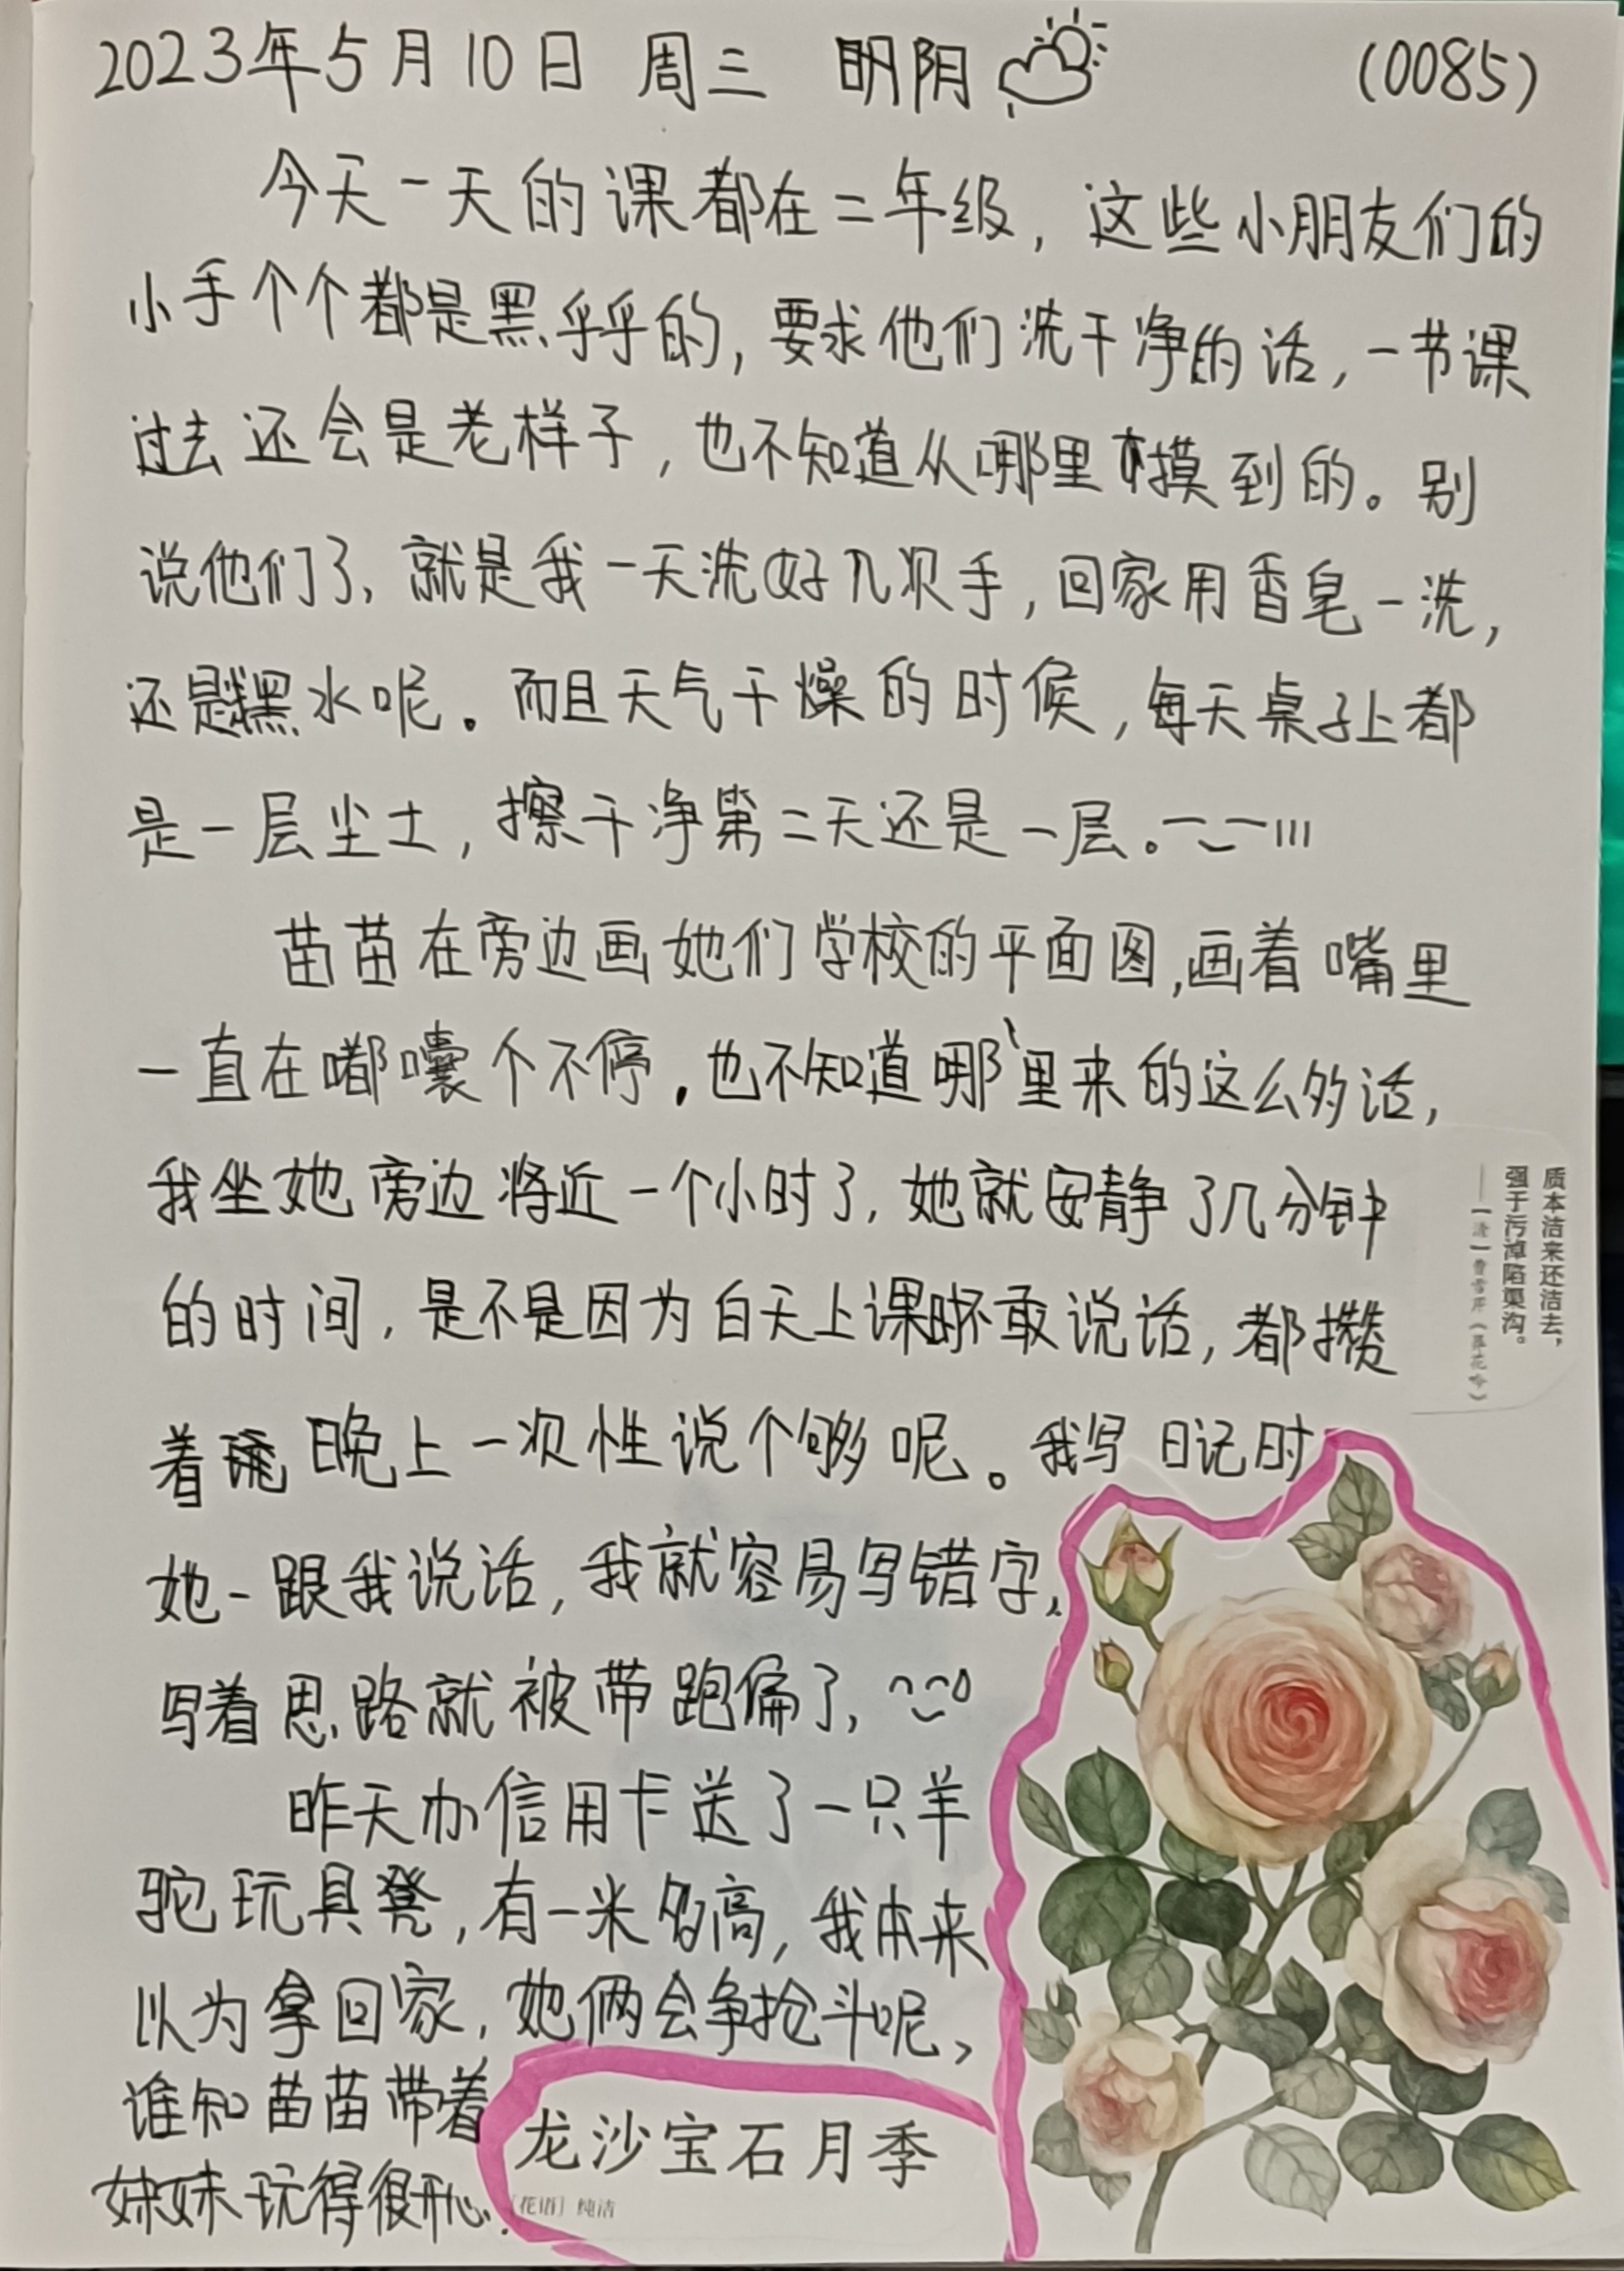 2023年5月10日 周三 阴 (0085)
今天一天的课都在二年级，这些小朋友们的
小手个个都是黑乎乎的，要求他们洗干净的话，一节课
过去还会是老样子，也不知道从哪里摸到的。别
说他们了，就是我一天洗好几次手，回家用香皂一洗，
还是黑水呢。而且天气干燥的时候，每天桌子上都
是一层尘土，擦干净第二天还是一层。
苗苗在旁边画她们学校的平面图，画着嘴里
一直在嘟囔个不停，也不知道哪里来的这么多话，
我坐她旁边将近一个小时了，她就安静了几分钟
的时间，是不是因为白天上课不敢说话，都攒
着晚上一次性说个够呢。我写日记时
她一跟我说话，我就容易写错字，
写着思路就被带跑偏了，
昨天办信用卡送了一只羊
驼玩具凳，有一米多高，我本来
以为拿回家，她俩会争抢斗呢，
谁知苗苗带着
妹妹玩得很开心.
质本洁来还洁去，
强于污淖陷渠沟。
——[清]曹雪芹《葬花吟》
龙沙宝石月季
[花语] 纯洁